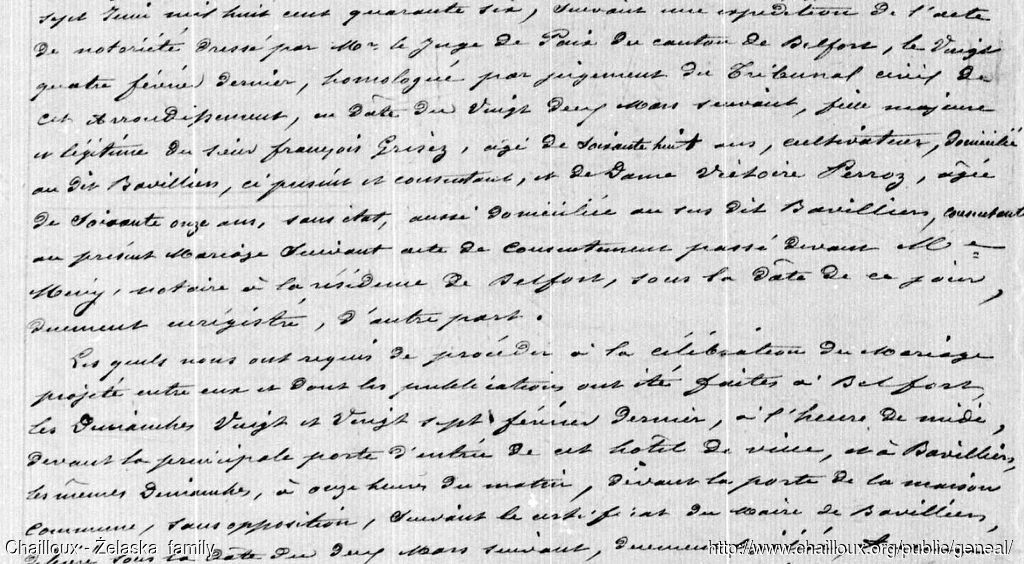 sept Juin mil huit cent quarante six, suivant une expédition de l'acte
de notoriété dressé par Mr. le Juge de Paix du canton de Belfort, le Vingt
quatre février dernier, homologué par jugement du Tribunal civil de
cet Arrondissement, en dâte du Vingt deux Mars suivant, fille majeure
et légitime du sieur françois Grisez, agé de soixante huit ans, cultivateur, domicilié
au dit Bavilliers, ci présent et consentant, et de Dame Victoire Perroz, âgée
de soixante onze ans, sans état, aussi domiciliée au sus dit Bavilliers, consentante
au présent Mariage suivant acte de consentement passé devant Me
notaire à la résidence de Belfort, sous la dâte de ce jour,
duement enrégistré, d'autre part.
Les quels nous ont requis de procéder à la célébration du Mariage
projété entre eux et dont les publications ont été faites à Belfort,
les Dimanches Vingt et Vingt sept février dernier, à l'heure de midi,
devant la principale porte d'entrée de cet hotel de ville, et à Bavilliers,
les mêmes Dimanches, à onze heures du matin, devant la porte de la maison
commune, sans opposition, suivant le certificat du Maire de Bavilliers,
sous la dâte du deux Mars suivant, duement
Chailloux - Żelaska family
http://www.chailloux.org/public/geneal/